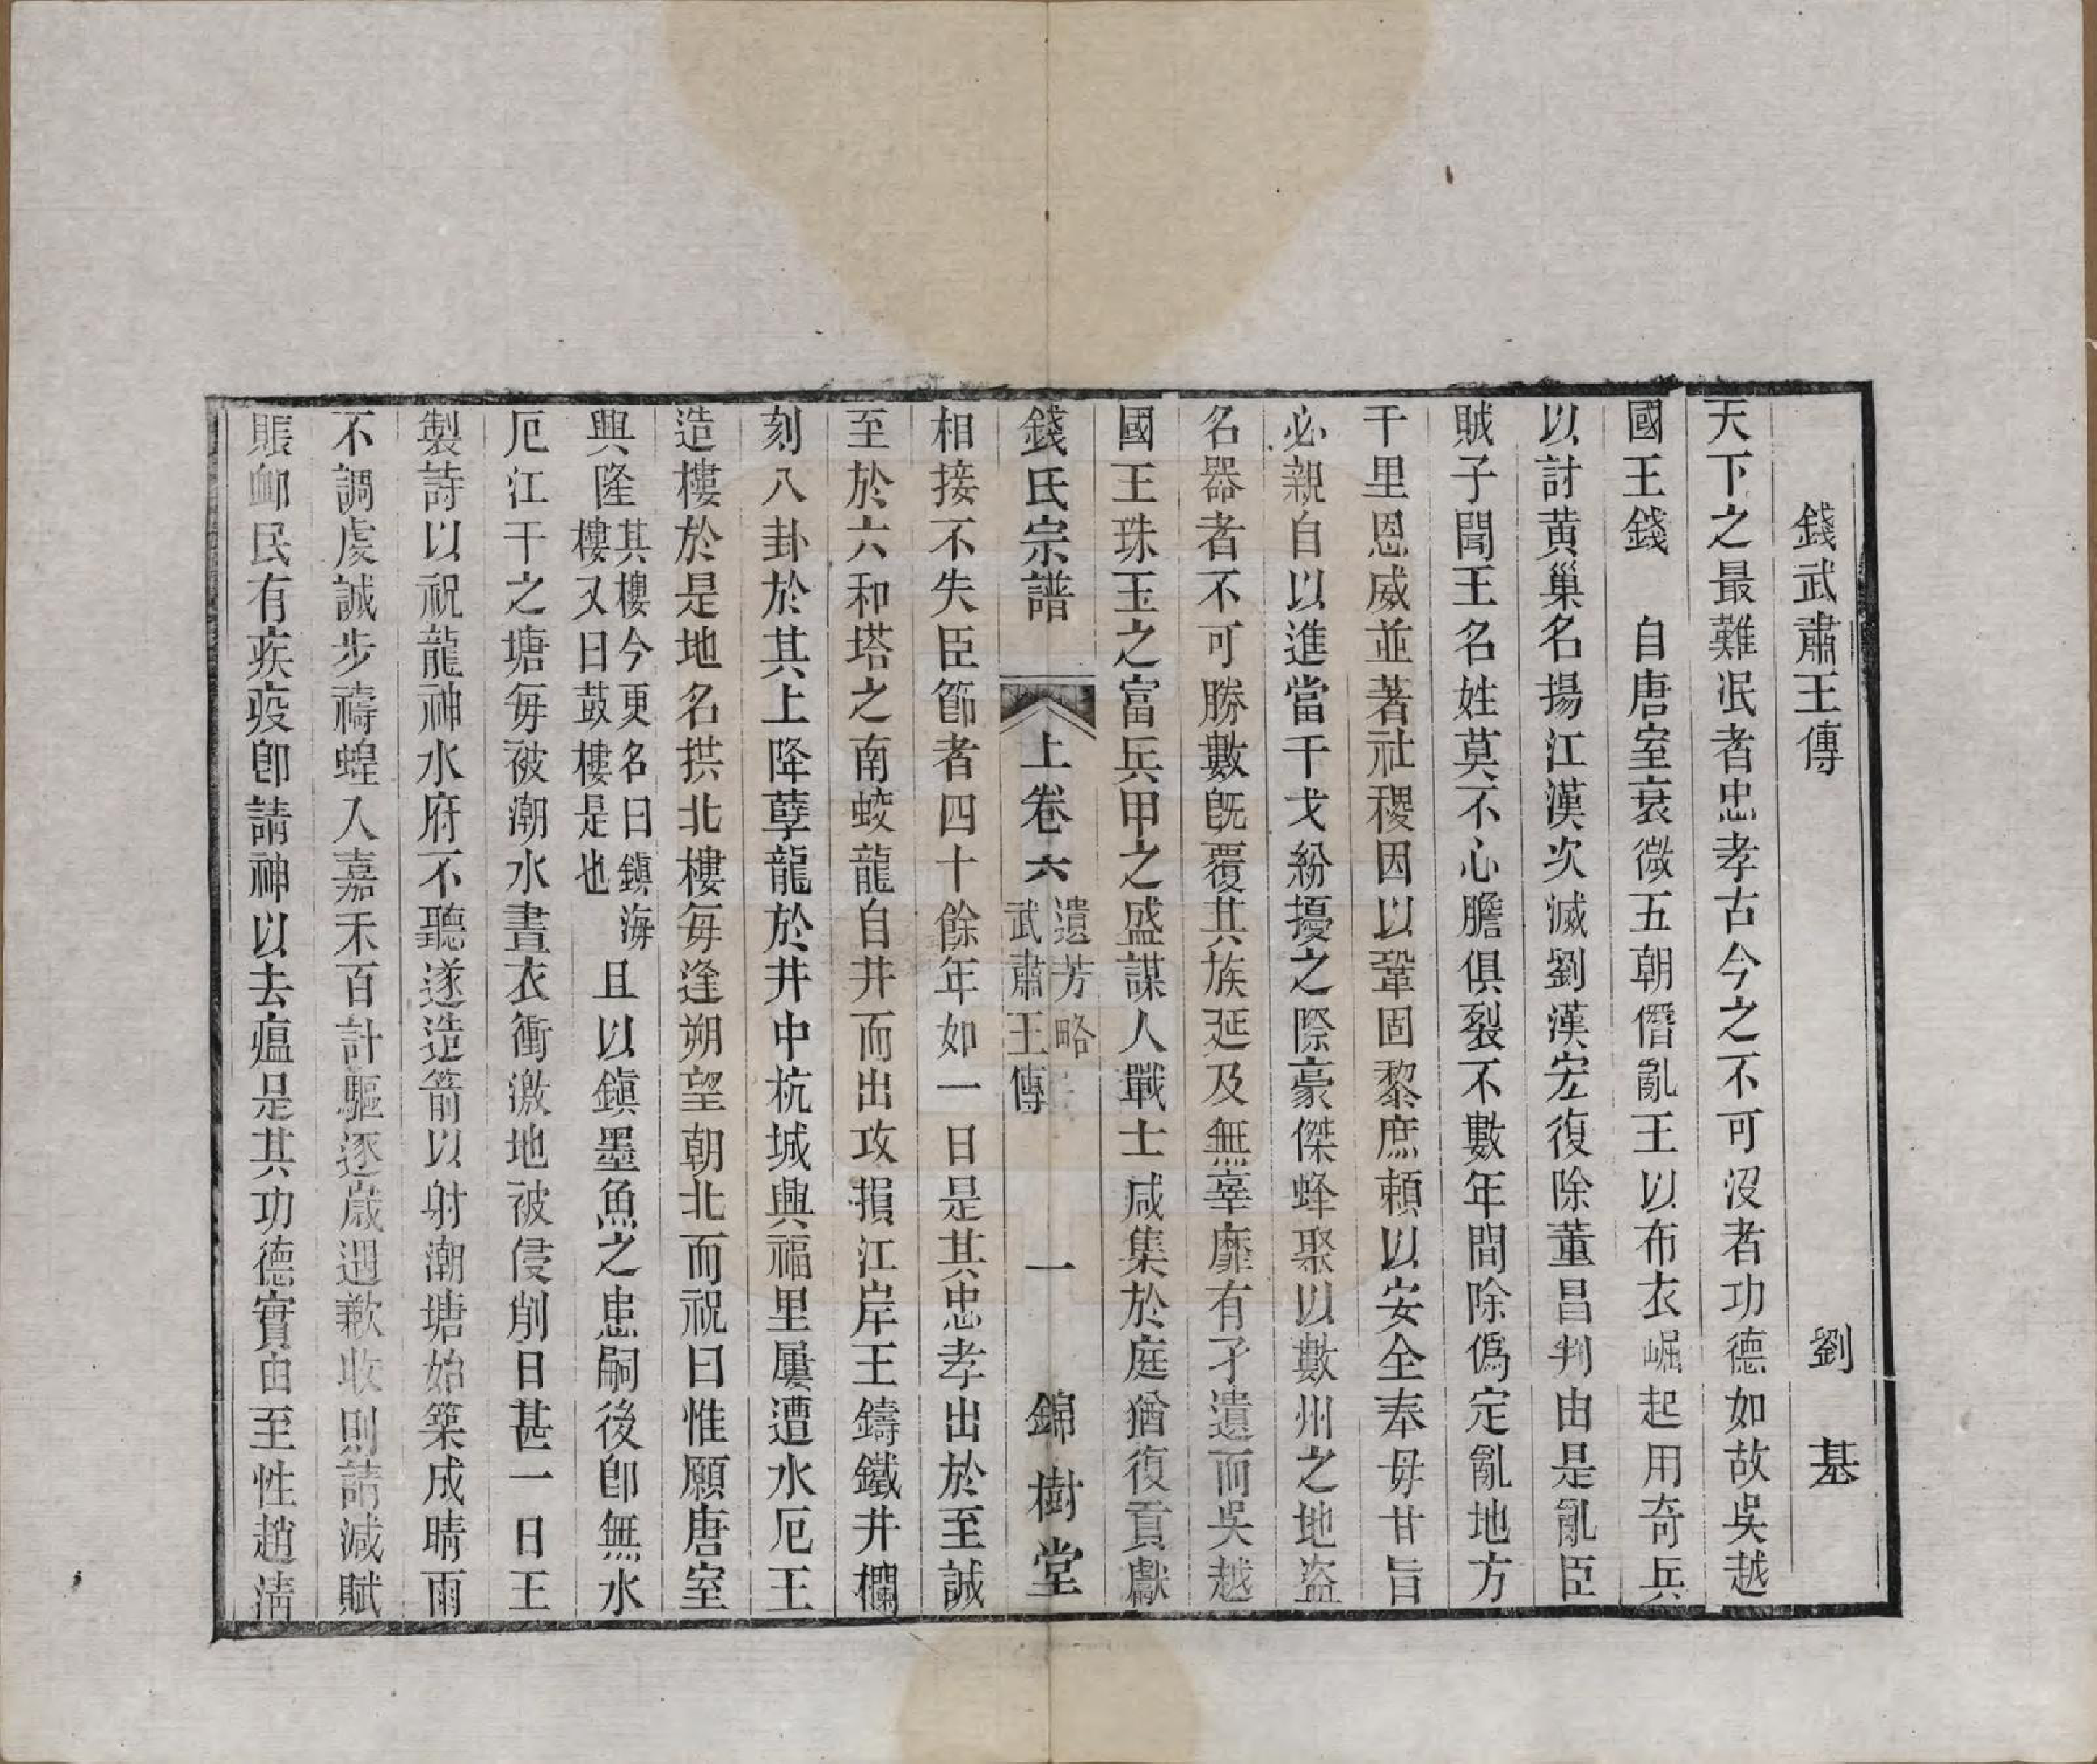 錢武肅王傳　劉　基
天下之最難泯者忠孝古今之不可沒者功德如故吳越
國王錢　自唐室衰微五朝僭亂王以布衣崛起用奇兵
以討黃巢名揚江漢次滅劉漢宏復除董昌判由是亂臣
賊子聞王名姓莫不心膽俱裂不數年間除僞定亂地方
千里恩威並著社稷因以鞏固黎庶頼以安全奉毋甘旨
必親自以進當干戈紛擾之際豪傑蜂聚以數州之地盜
名器者不可勝數旣覆其族延及無辜靡有孑遺而吳越
國王珠玉之富兵甲之盛謀人戰士咸集於庭猶復貢獻
錢氏宗譜　上卷六　遺芳略　武肅王傳　一　錦樹堂
相接不失臣節者四十餘年如一日是其忠孝出於至誠
至於六和塔之南蛟龍自井而出攻損江岸王鑄鐵井欄
刻八卦於其上降孽龍於井中杭城興福里屢遭水厄王
造樓於是地名拱北樓每逢朔望朝北而祝曰惟願唐室
興隆其樓今更名曰鎭海樓又曰鼓樓是也且以鎭墨魚之患嗣後卽無水
厄江干之塘每被潮水晝衣衝激地被侵削日甚一日王
製詩以祝龍神水府不聽遂造箭以射潮塘始築成晴雨
不調虔誠步禱蝗入嘉禾百計驅逐歲遇歉收則請減賦
賑邮民有疾疫卽請神以去瘟是其功德實由至性趙清